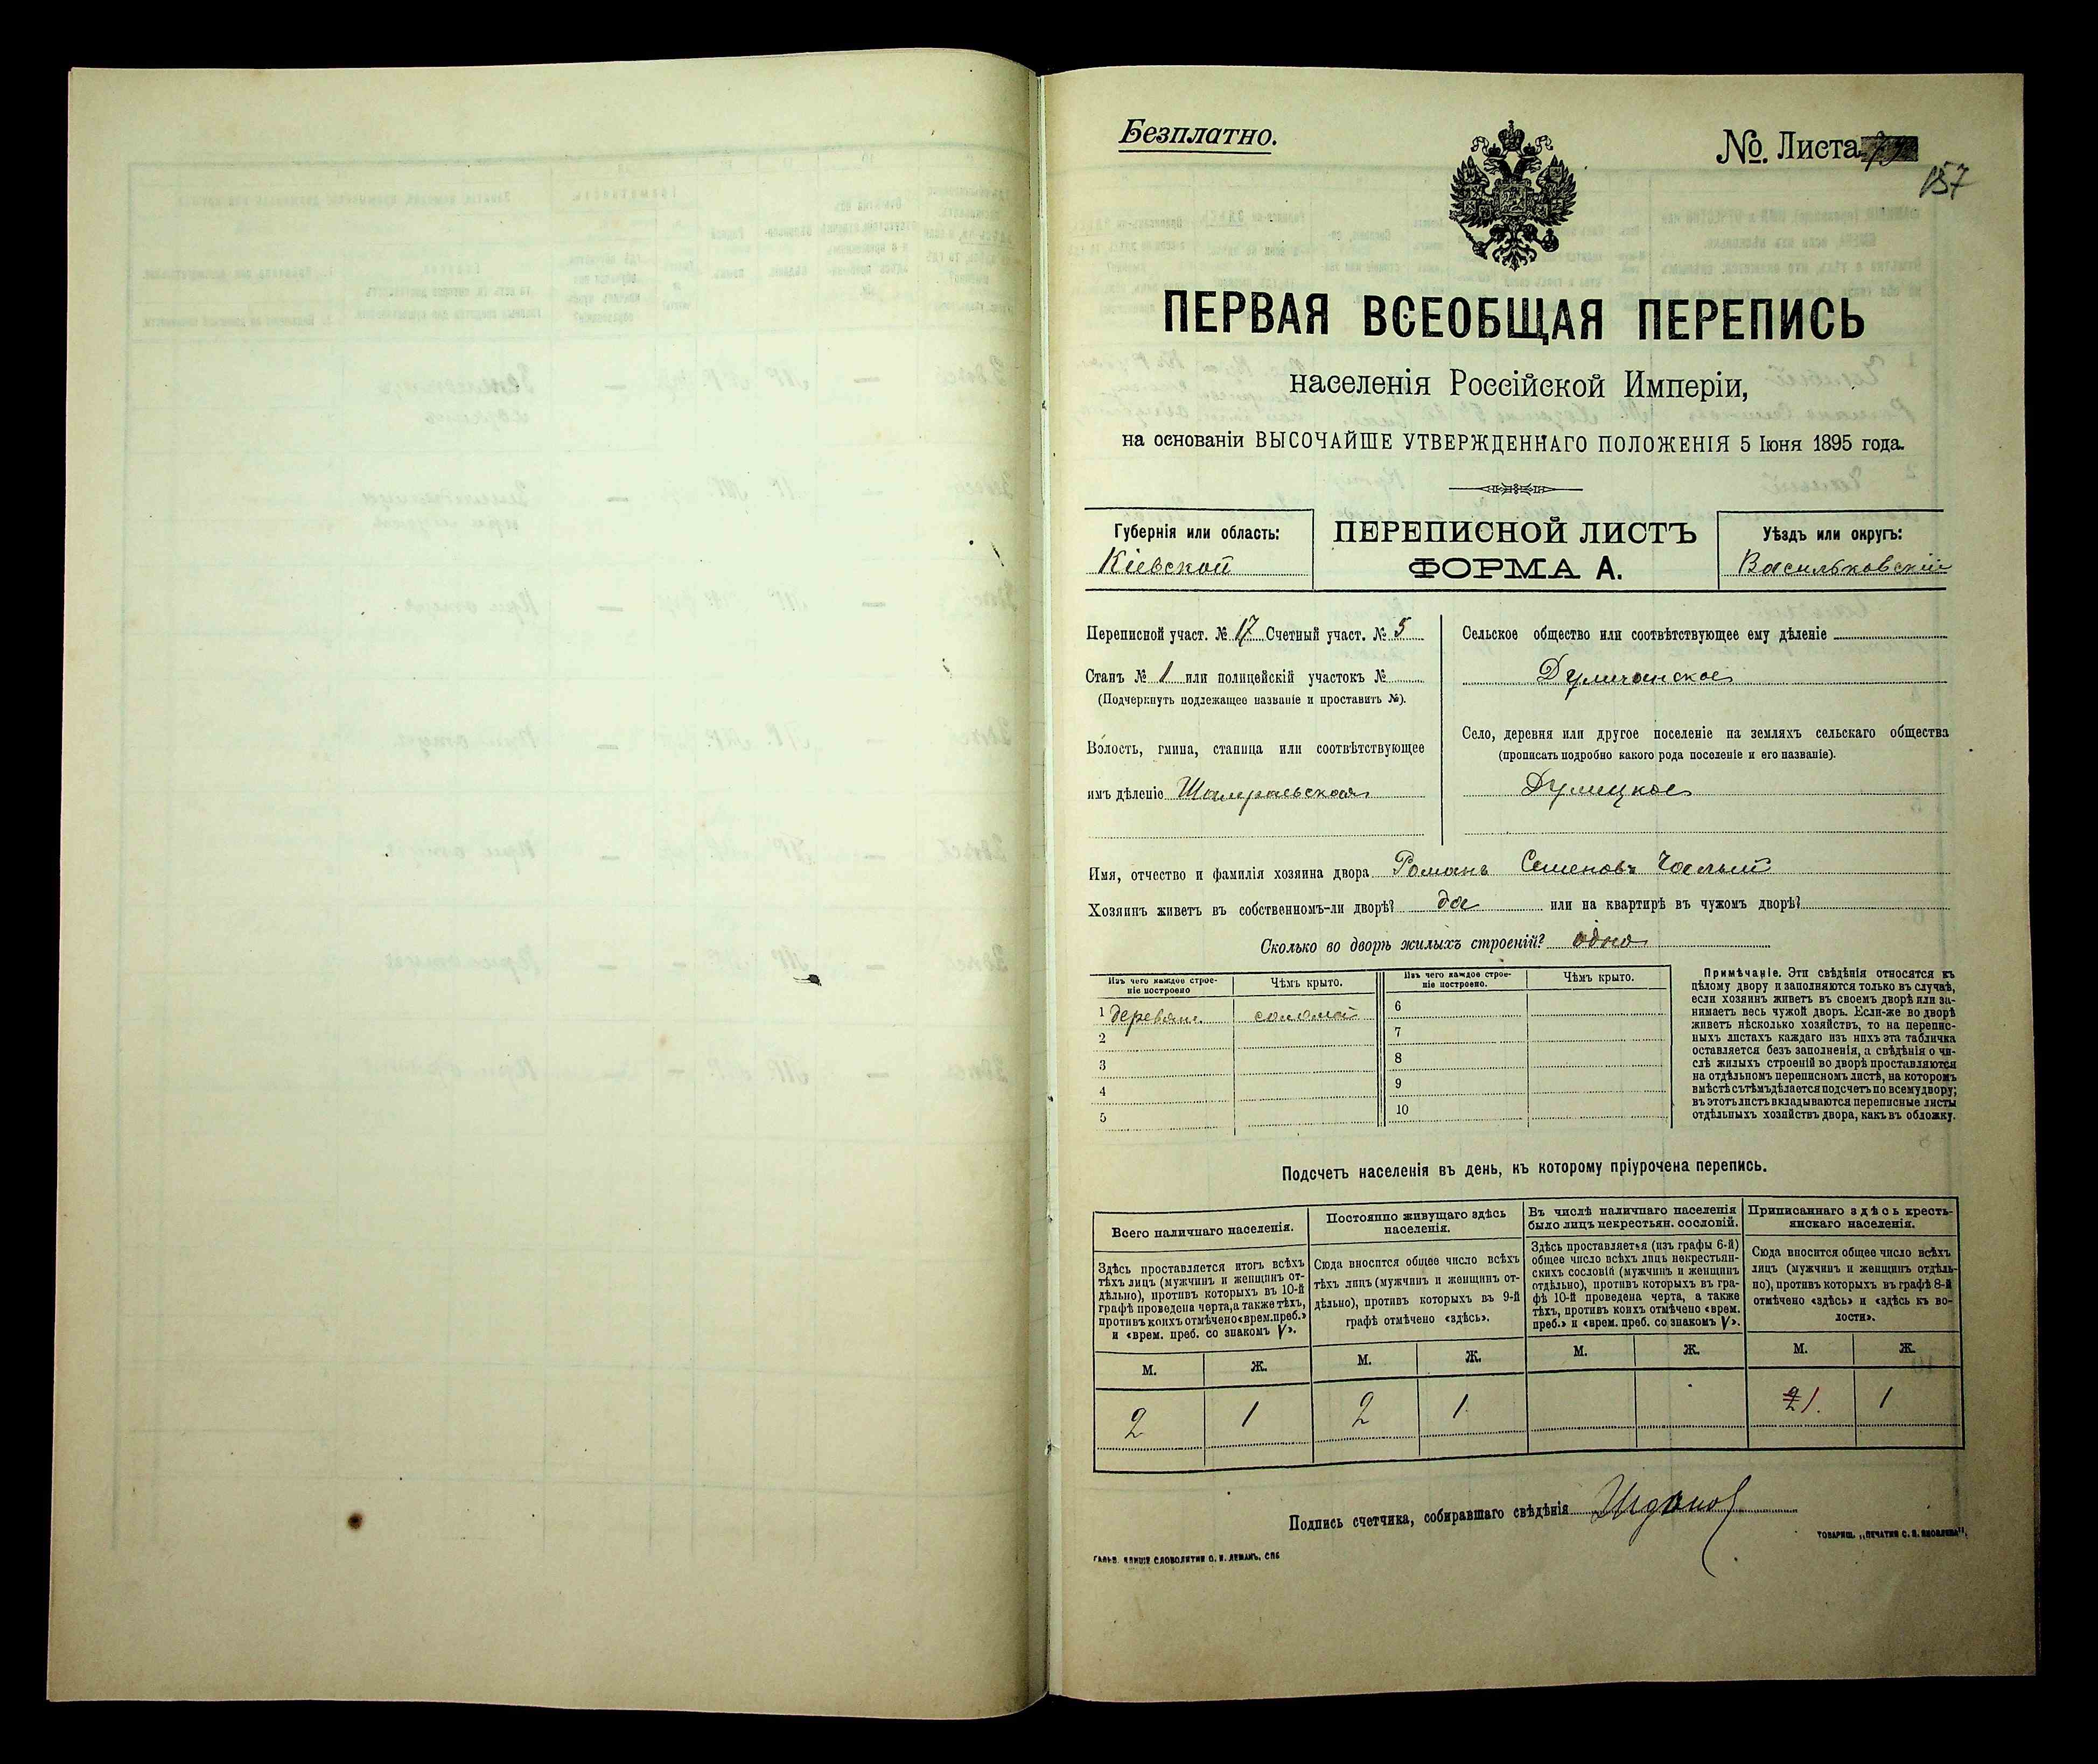 Безплатно.
№. Листа
157
ПЕРВАЯ ВСЕОБЩАЯ ПЕРЕПИСЬ
населенія Россійской Имперіи,
на основаніи ВЫСОЧАЙШЕ УТВЕРЖДЕННАГО ПОЛОЖЕНІЯ 5 Іюня 1895 года.
Губернія или область:
Кіевской
ПЕРЕПИСНОЙ ЛИСТЪ
ФОРМА А.
Уѣздъ или округъ:
Васильковскій
Переписной участ. № 17 Счетный участ. № 5
Станъ № 1 или полицейскій участокъ №
(Подчеркнуть подлежащее названіе и проставить №).
Волость, гмина, станица или соотвѣтствующее
имъ дѣленіе Шамраевская
Сельское общество или соотвѣтствующее ему дѣленіе
Село, деревня или другое поселеніе на земляхъ сельскаго общества
(прописать подробно какого рода поселеніе и его названіе).
Дулицкое
Имя, отчество и фамилія хозяина двора Романъ Семеновъ Чалый
Хозяинъ живетъ въ собственномъ-ли дворѣ? да или на квартирѣ въ чужомъ дворѣ?
Сколько во дворѣ жилыхъ строеній? одно
Изъ чего каждое строе-
ніе построено
Чѣмъ крыто.
1 деревян. соломой
2
3
4
5
Изъ чего каждое строе-
ніе построено.
Чѣмъ крыто.
6
7
8
9
10
Примѣчаніе. Эти свѣдѣнія относятся къ
цѣлому двору и заполняются только въ случаѣ,
если хозяинъ живетъ въ своемъ дворѣ или за-
нимаетъ весь чужой дворъ. Если-же во дворѣ
живетъ нѣсколько хозяйствъ, то на перепис-
ныхъ листахъ каждаго изъ нихъ эта табличка
оставляется безъ заполненія, а свѣдѣнія о чи-
слѣ жилыхъ строеній во дворѣ проставляются
на отдѣльномъ переписномъ листѣ, на которомъ
вмѣстѣ съ тѣмъ дѣлается подсчетъ по всему двору;
въ этотъ листъ вкладываются переписные листы
отдѣльныхъ хозяйствъ двора, какъ въ обложку.
Подсчетъ населенія въ день, къ которому пріурочена перепись.
Всего наличнаго населенія.
Здѣсь проставляется итогъ всѣхъ
тѣхъ лицъ (мужчинъ и женщинъ от-
дѣльно), противъ которыхъ въ 10-й
графѣ проведена черта, а также тѣхъ,
противъ коихъ отмѣчено «врем. преб.»
и «врем. преб. со знакомъ V».
М. Ж.
2 1
Постоянно живущаго здѣсь
населенія.
Сюда вносится общее число всѣхъ
тѣхъ лицъ (мужчинъ и женщинъ от-
дѣльно), противъ которыхъ въ 9-й
графѣ отмѣчено «здѣсь».
М. Ж.
2 1
Въ числѣ наличнаго населенія
было лицъ некрестьян. сословій.
Здѣсь проставляется (изъ графы 6-й)
общее число всѣхъ лицъ некрестьян-
скихъ сословій (мужчинъ и женщинъ
отдѣльно), противъ которыхъ въ гра-
фѣ 10-й проведена черта, а также
тѣхъ, противъ коихъ отмѣчено «врем.
преб.» и «врем. преб. со знакомъ V».
М. Ж.
Приписаннаго здѣсь кресть-
янскаго населенія.
Сюда вносится общее число всѣхъ
лицъ (мужчинъ и женщинъ отдѣль-
но), противъ которыхъ въ графѣ 8-й
отмѣчено «здѣсь» и «здѣсь къ во-
лости».
М. Ж.
2 1. 1
Подпись счетчика, собиравшаго свѣдѣнія
ТОВАРИЩ. „ПЕЧАТНЯ С. П. ЯКОВЛЕВА".
СЛОВОЛИТНИ О. И. ЛЕМАНЪ, СПБ